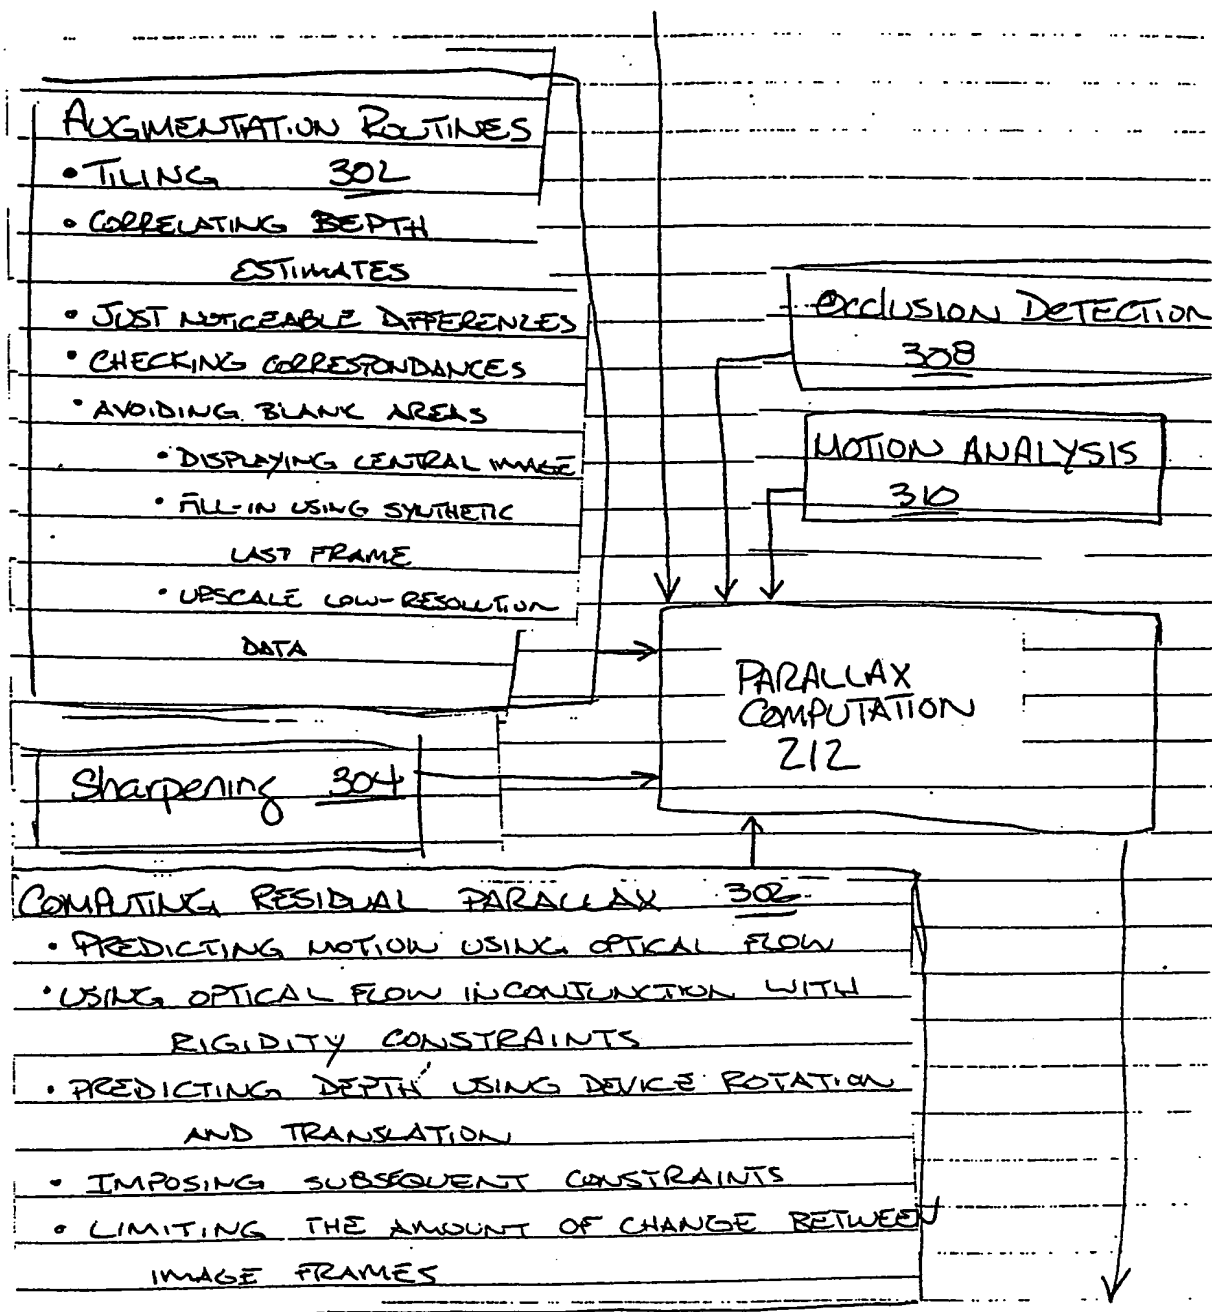 AUGMENTATION ROUTINES
• TILING 302
• CORRELATING DEPTH
ESTIMATES
• JUST NOTICEABLE DIFFERENCES
• CHECKING CORRESPONDANCES
• AVOIDING BLANK AREAS
• DISPLAYING CENTRAL IMAGE
• FILL-IN USING SYNTHETIC
LAST FRAME
• UPSCALE LOW-RESOLUTION
DATA
Occlusion DETECTION
308
MOTION ANALYSIS
310
PARALLAX
COMPUTATION
212
Sharpening 304
COMPUTING RESIDUAL PARALLAX 306
• PREDICTING MOTION USING OPTICAL FLOW
• USING OPTICAL FLOW IN CONJUNCTION WITH
RIGIDITY CONSTRAINTS
• PREDICTING DEPTH USING DEVICE ROTATION
AND TRANSLATION
• IMPOSING SUBSEQUENT CONSTRAINTS
• LIMITING THE AMOUNT OF CHANGE BETWEEN
IMAGE FRAMES